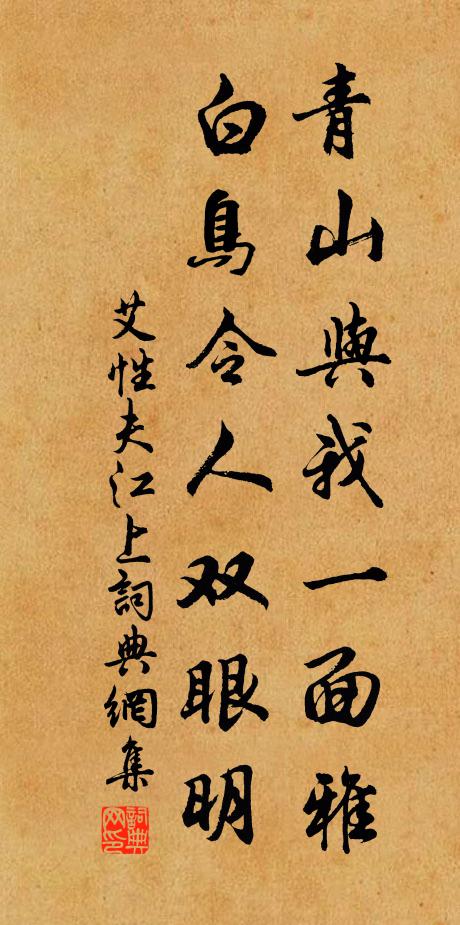 青山與我一面雅
白鳥令人双眼明
艾性夫江上詞典網集
詞典
网印